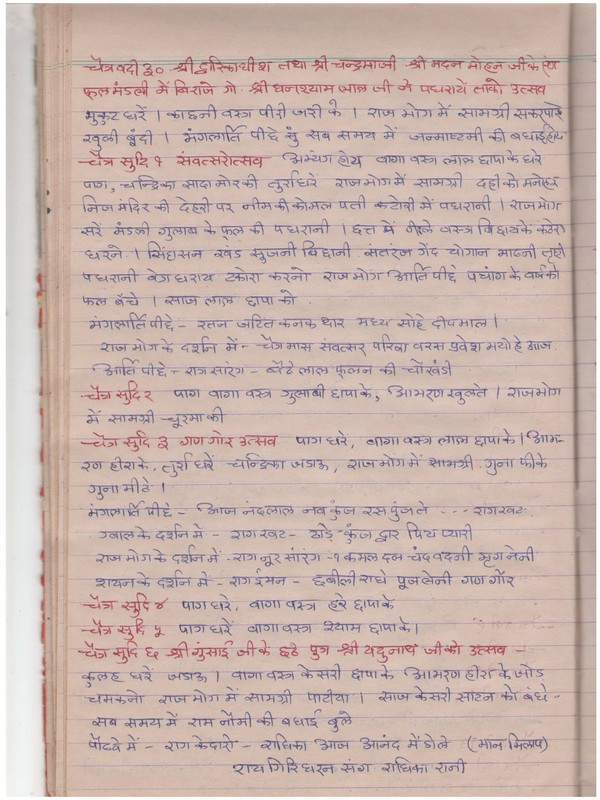 चैत्र वदी ३० श्री द्वारिकाधीश तथा श्री चन्द्रमाजी श्री मदन मोहन जी के
फूल मंडली में बिराजे गो. श्री घनश्याम लाल जी ने पधराये ताको उत्सव
मुकुट धरें । काछनी वस्त्र पीरी जरी के । राज भोग में सामग्री सकरपारे
खुली बूंदी । मंगलार्ति पीछे सुं सब समय में जन्माष्टमी की बधाई होय
चैत्र सुदि १ संवत्सरोत्सव अभ्यंग होय वागा वस्त्र लाल छापा के धरे
पाग, चन्द्रिका सादा मोर की तुर्रा धरें राजभोग में सामग्री दही को मनोहर
निज मंदिर की देहरी पर नीम की कोमल पत्ती कटोरी में पधरानी । राजभोग
सरें मंडली गुलाब के फूल की पधरानी । छत्त में वस्त्र बिछाय के
धरने । सिंहासन खंड सुजनी बिछानी. संतरंज गेंद चोगान
पधरानी वेग धराय टकोरा करनो राजभोग आर्ति पीछे पंचांग के वर्ष को
फल बँचे । साज लाल छापा को
मंगलार्ति पीछे - रतन जटित कनक थार मध्य सोहे दीपमाल ।
राज भोग के दर्शन में - चैत्र मास संवत्सर परिवा वरस प्रवेश भयो हे आज.
आर्ति पीछे - राग सारंग - बैठे लाल फूलन की चौखंडी
चैत्र सुदि २ पाग वागा वस्त्र गुलाबी छापा के, आभरण खुलते । राजभोग
में सामग्री चूरमा की
चैत्र सुदि ३ गणगोर उत्सव पाग धरें, वागा वस्त्र लाल छापा के । आभ-
रण हीरा के, तुर्रा धरें चन्द्रिका जडाऊ, राजभोग में सामग्री गुना फीके
गुना मीठे ।
मंगलार्ति पीछे - आज नंदलाल नव कुंज रस पुंज ते --- राग खट.
ग्वाल के दर्शन में - राग खट - ठाडे कुंज द्वार पिय प्यारी
राज भोग के दर्शन में - राग नूर सारंग - १ कमल दल चंद वदनी मृग नेनी
शयन के दर्शन में - राग ईमन - छबीली राधे पूज लेनी गणगौर
चैत्र सुदि ४ पाग धरे, वागा वस्त्र हरे छापा के
चैत्र सुदि ५ पाग धरें वागा वस्त्र श्याम छापा के ।
चैत्र सुदि ६ श्री गुंसाई जी के छठे पुत्र श्री यदुनाथ जी को उत्सव -
कुलह धरें जडाऊ । वागा वस्त्र केसरी छापा के आभरण हीरा के जोड
चमकनो राजभोग में सामग्री पाटीया । साज केसरी साटन को बंधे -
सब समय में राम नौमी की बधाई बुले
पौढवे में - राग केदारो - राधिका आज आनंद में डोले (मान मिलाप)
राय गिरिधरन संग राधिका रानी